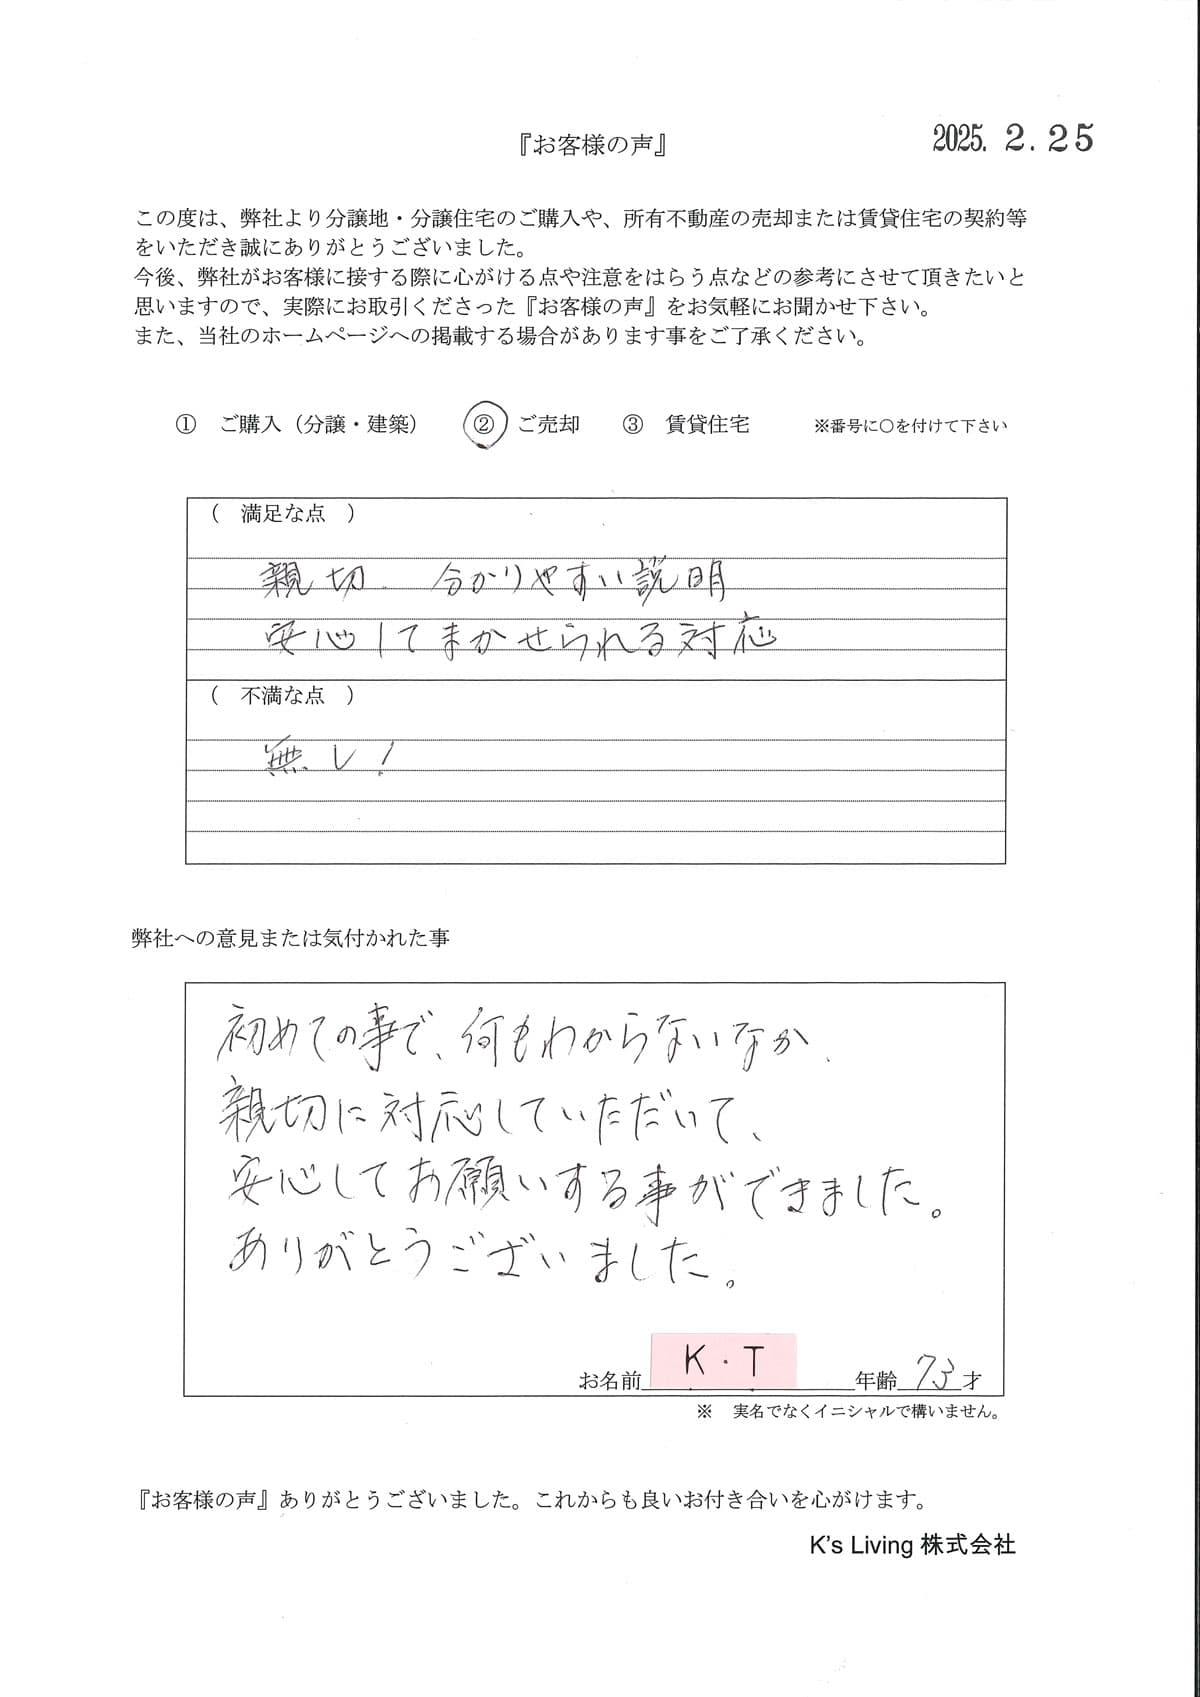 『お客様の声』
2025. 2. 25
この度は、弊社より分譲地・分譲住宅のご購入や、所有不動産の売却または賃貸住宅の契約等
をいただき誠にありがとうございました。
今後、弊社がお客様に接する際に心がける点や注意をはらう点などの参考にさせて頂きたいと
思いますので、実際にお取引くださった『お客様の声』をお気軽にお聞かせ下さい。
また、当社のホームページへの掲載する場合があります事をご了承ください。
① ご購入（分譲・建築） ② ご売却 ③ 賃貸住宅 ※番号に〇を付けて下さい
（ 満足な点 ）
親切、分かりやすい説明
安心してまかせられる対応
（ 不満な点 ）
無し！
弊社への意見または気付かれた事
初めての事で、何もわからないなか、
親切に対応していただいて、
安心してお願いする事ができました。
ありがとうございました。
お名前 K・T 年齢 73 才
※ 実名でなくイニシャルで構いません。
『お客様の声』ありがとうございました。これからも良いお付き合いを心がけます。
K's Living 株式会社